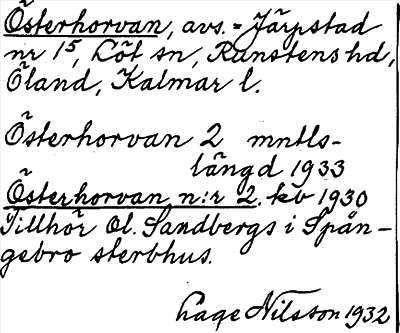 Österhorvan, avs. = Järpstad
nr 1⁵, Löt sn, Runstens hd,
Öland, Kalmar l.
Österhorvan 2 mntls-
längd 1933
Österhorvan n:r 2. kb 1930
Tillhör Ol. Sandbergs i Spån-
gebro sterbhus.
Låge Nilsson 1932